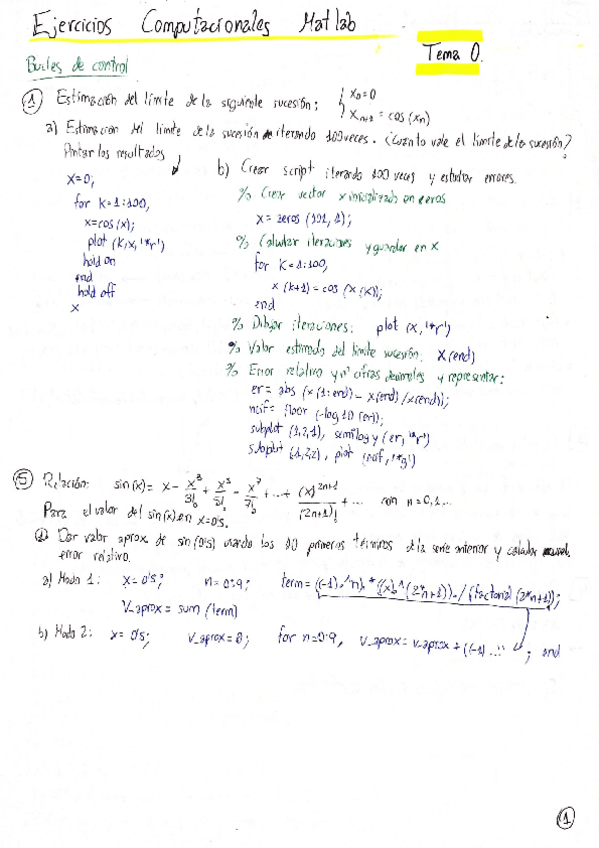 Ejercicios Computacionales Matlab
Tema 0.
Bucles de control
① Estimación del límite de la siguiente sucesión: { x₀=0
xₙ₊₁ = cos(xₙ)
a) Estimación del límite de la sucesión iterando 100 veces. ¿Cuánto vale el límite de la sucesión?
Pintar los resultados
x=0;
for k=1:100,
x=cos(x);
plot(k,x,'*r')
hold on
end
hold off
x
b) Crear script iterando 100 veces y estudiar errores.
% Crear vector x inicializado en ceros
x = zeros(101,1);
% Calcular iteraciones y guardar en x
for k=1:100,
x(k+1)=cos(x(k));
end
% Dibujar iteraciones: plot(x,'*r')
% Valor estimado del límite sucesión: x(end)
% Error relativo y nº cifras decimales y representar:
er = abs(x(1:end)-x(end)/x(end));
ncif= floor(-log10(er));
subplot(1,2,1), semilogy(er,'*r')
subplot(1,2,2), plot(ncif,'*g')
⑤ Relación: sin(x) = x - x³/3! + x⁵/5! - x⁷/7! + ... + (x)²ⁿ⁺¹/(2n+1)! + ... con n=0,1...
Para el valor del sin(x) en x=0's.
Dar valor aprox. de sin(0's) usando los 10 primeros términos de la serie anterior y calcular
error relativo.
a) Modo 1: x=0's; n=0:9; term=((-1).^n).*((x.^(2*n+1))./(factorial(2*n+1));
V_aprox = sum(term)
b) Modo 2: x=0's; v_aprox=0; for n=0:9, v_aprox=v_aprox+((-1)...; end
①